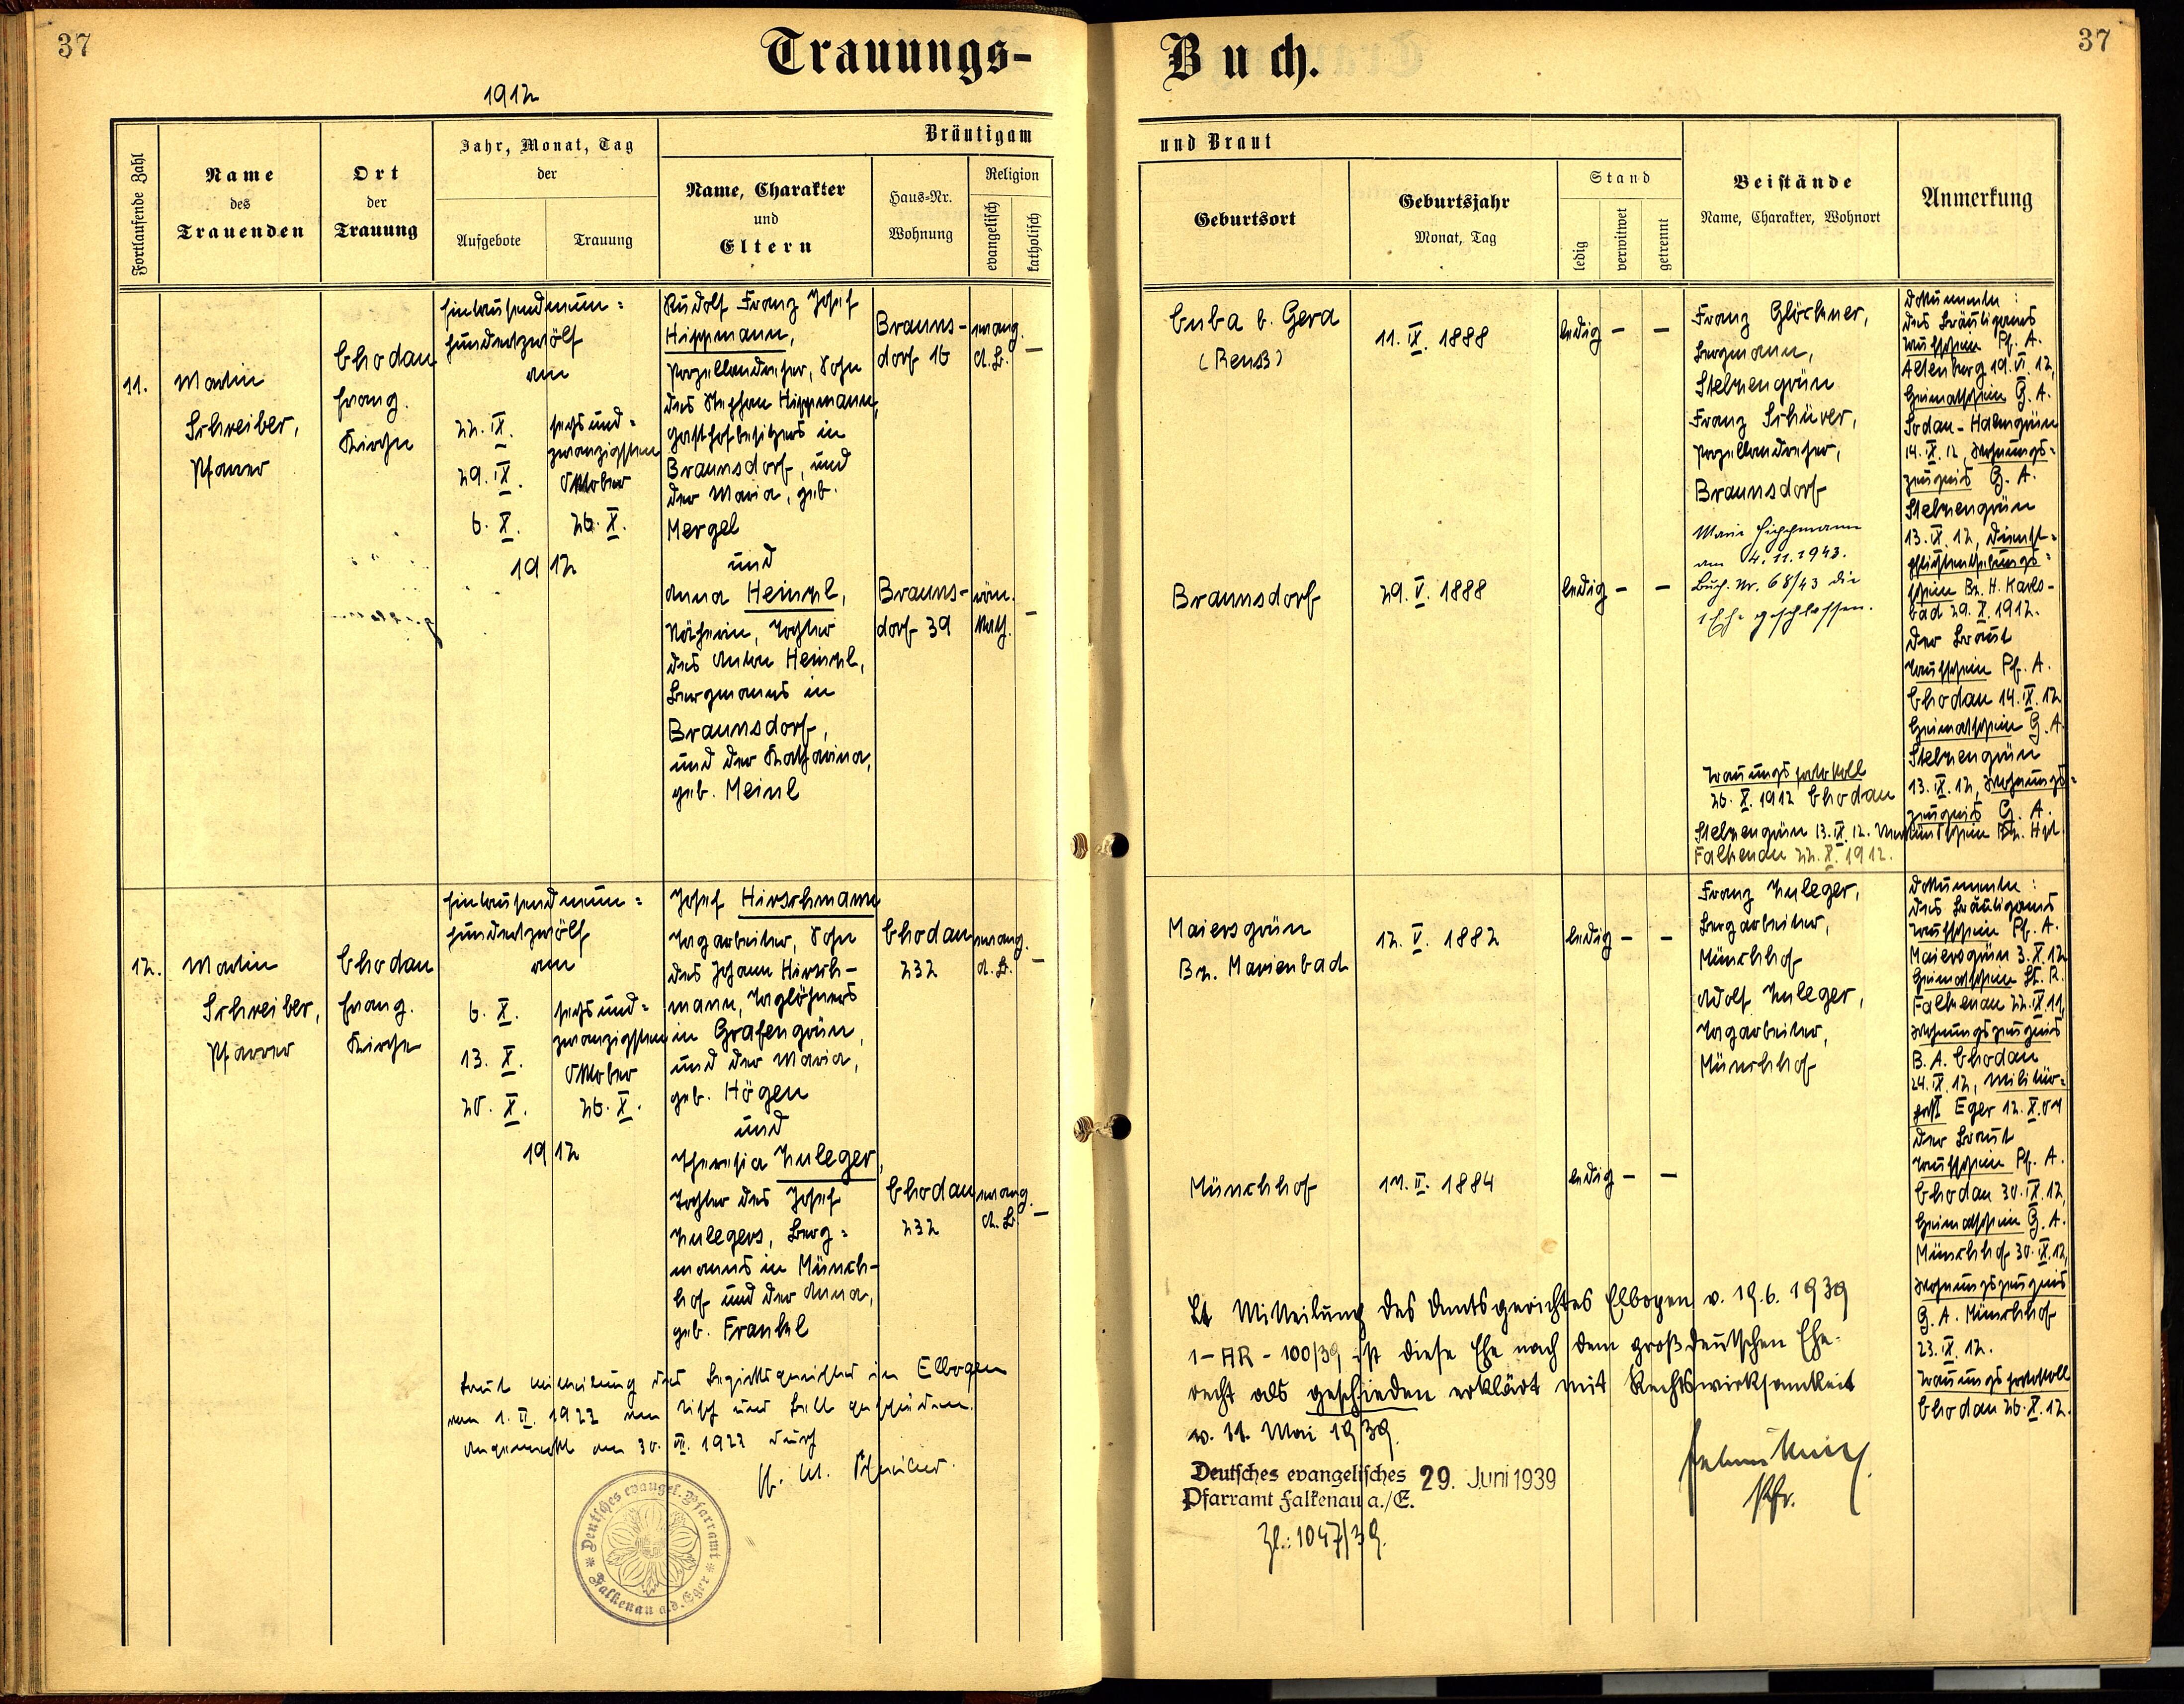 37
Trauungs-
1912
Fortlaufende Zahl
Name
des
Trauenden
Ort
der
Trauung
Jahr, Monat, Tag
der
Aufgebote
Trauung
Bräutigam
Name, Charakter
und
Eltern
Haus-Nr.
Wohnung
Religion
evangelisch
katholisch
11.
Martin
Schreiber,
Pfarrer
Chodau
Evang.
Kirche
Eintausendneun=
hundertzwölf
am
22. IX.
29. IX.
6. X.
sechsund=
zwanzigsten
Oktober
26. X.
1912
Rudolf Franz Josef
Hippmann,
Porzellandreher, Sohn
des Stephan Hippmann,
Gasthofbesitzers in
Braunsdorf, und
der Maria, geb.
Mergel
und
Anna Heinzl,
Näherin, Tochter
des Anton Heinzl,
Bergmanns in
Braunsdorf,
und der Katharina,
geb. Meinl
Brauns-
dorf 16
evang.
A. B.
–
Brauns-
dorf 39
röm.
kath.
–
12.
Martin
Schreiber,
Pfarrer
Chodau
Evang.
Kirche
Eintausendneun=
hundertzwölf
am
6. X.
13. X.
20. X.
sechsund=
zwanzigsten
Oktober
26. X.
1912
Josef Hirschmann
Tagarbeiter, Sohn
des Johann Hirsch-
mann, Taglöhners
in Grafengrün,
und der Maria,
geb. Högen
und
Theresia Zuleger,
Tochter des Josef
Zulegers, Berg=
manns in Münch-
hof und der Anna,
geb. Frankl
Chodau
232
evang.
A. B.
–
Chodau
232
evang.
A. B.
–
Laut Mitteilung des Bezirksgerichtes in Elbogen
vom 1. II. 1922 von Tisch und Bett geschieden.
Angemerkt am 30. 1922 durch
Pf. M. Schreiber.
Deutsches evangel. Pfarramt
Falkenau a. d. Eger
Buch.
37
und Braut
Geburtsort
Geburtsjahr
Monat, Tag
Stand
ledig
verwitwet
getrennt
Beistände
Name, Charakter, Wohnort
Anmerkung
Cuba b. Gera
(Reuß)
11. IX. 1888
ledig – –
Braunsdorf
29. V. 1888
ledig – –
Franz Glöckner,
Bergmann,
Stelzengrün
Franz Schürer,
Porzellandreher,
Braunsdorf
Marie Hippmann
am 4.11.1943.
Buch. Nr. 68/43 die
Ehe geschlossen.
Trauungsprotokoll
26. X. 1912 Chodau
Dokumente:
des Bräutigams
Taufschein Pf. A.
Altenberg 19. VI. 12,
Heimatschein G. A.
Sodau-Halmgrün
14. IX. 12, Wohnungs=
zeugnis G. A.
Stelzengrün
13. IX. 12, Dienst=
pflichtenthebungs=
schein Bz. H. Karls-
bad 29. X. 1912.
der Braut
Taufschein Pf. A.
Chodau 14. IX. 12
Heimatschein G. A.
Stelzengrün
13. IX. 12, Wohnungs=
zeugnis G. A.
Stelzengrün 13. IX. 12. Verkündschein Bz. Hpt.
Falkenau 22. X. 1912.
Maiersgrün
Bz. Marienbad
12. V. 1882
ledig – –
Münchhof
ledig – –
Franz Zuleger,
Bergarbeiter,
Münchhof
Adolf Zuleger,
Tagarbeiter,
Münchhof
Dokumente:
des Bräutigams
Taufschein Pf. A.
Maiersgrün 3. X. 12
Heimatschein St. R.
Falkenau 22. IX. 11,
Wohnungszeugnis
B. A. Chodau
24. IX. 12, Militär=
paß Eger 12. X. 04
der Braut
Taufschein Pf. A.
Chodau 30. IX. 12,
Heimatschein G. A.
Münchhof 30. IX. 12,
Wohnungszeugnis
G. A. Münchhof
23. IX. 12.
Trauungsprotokoll
Chodau 26. X. 12.
Lt. Mitteilung des Amtsgerichtes Elbogen v. 19.6.1939
1-AR-100/39 ist diese Ehe nach dem großdeutschen Ehe-
recht als geschieden erklärt mit Rechtswirksamkeit
v. 11. Mai 1939.
Deutsches evangelisches
Pfarramt Falkenau a./E.
29. Juni 1939
Zl.: 1047/39.
Pfr.